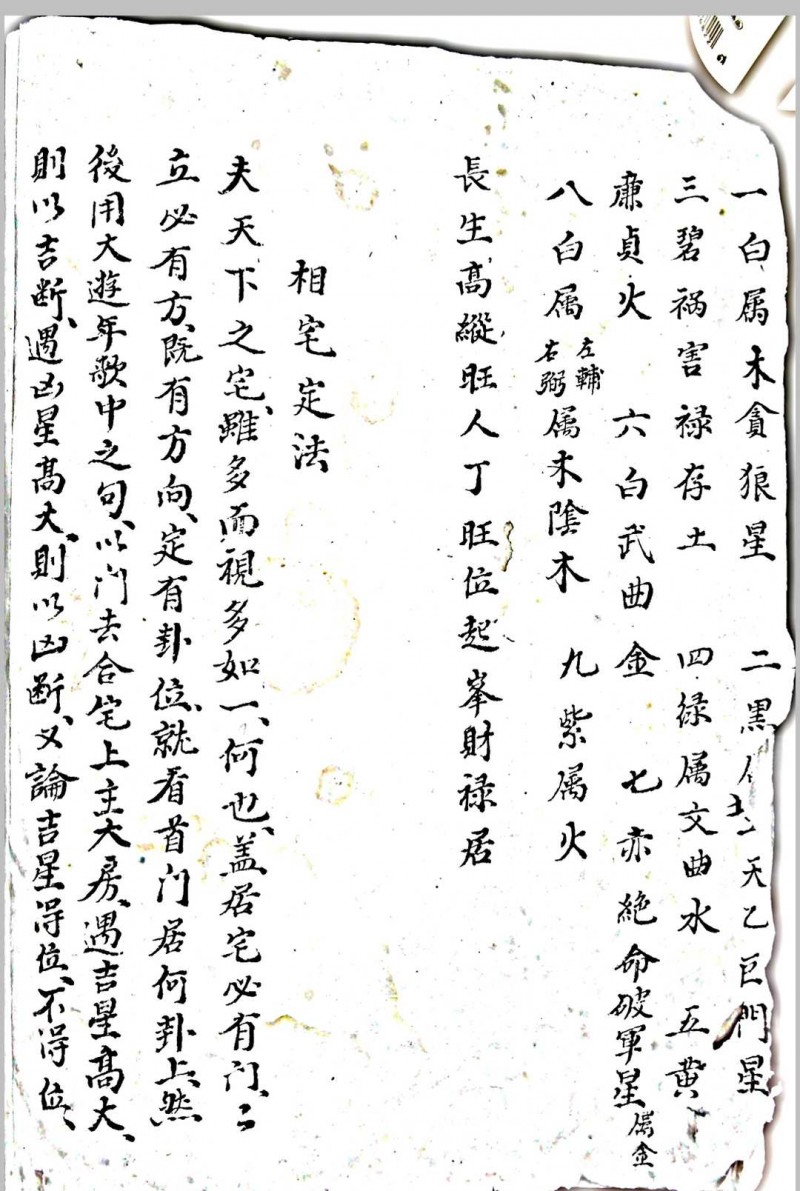 一白属木貪狼星　二黑属土天乙巨門星
三碧祸害禄存土　四绿属文曲水　五黄
亷貞火　六白武曲金　七赤絶命破军星属金
八白属左輔右弼属木陰木　九紫属火
長生高縱旺人丁旺位起峯財禄居
相宅定法
夫天下之宅、雖多而視多如一、何也、盖居宅必有门、〻
立必有方、既有方向、定有卦位、就看首门居何卦上、然
後用大遊年歌中之句、以门去合宅上主大房、遇吉星高大、
則以吉断、遇凶星高大、則以凶断、又論吉星得位、不得位、